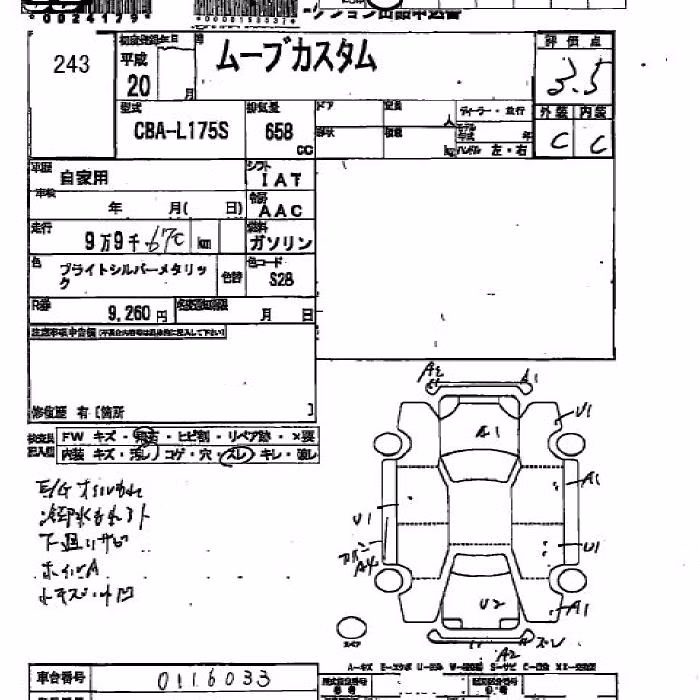 *0024179*
243
平成
20
月
ムーブカスタム
評価点
3.5
型式
CBA-L175S
排気量
658
cc
ドア
定員
形状
積載
ディーラー・並行
モデル年式 年
ハンドル 左・右
外装 内装
C C
車歴
自家用
シフト
IAT
車検
年 月( 日)
AAC
走行
9万9千670 km
燃料
ガソリン
色
ブライトシルバーメタリック
色替
色コード
S28
R券
9,260 円
月 日
修復歴 有 [箇所 ]
検査員記入欄
FW キズ・飛石・ヒビ割・リペア跡・×要
内装 キズ・汚レ・コゲ・穴・スレ・キレ・濡レ
E/Gオイルもれ
冷却水もれ跡
下廻りサビ
ホイルA
小キズ・小凹
A2
A1
U1
A1
A1
U1
U1
A4
U2
A1
スレ
A2
スペア
A-キズ
車台番号
0116033